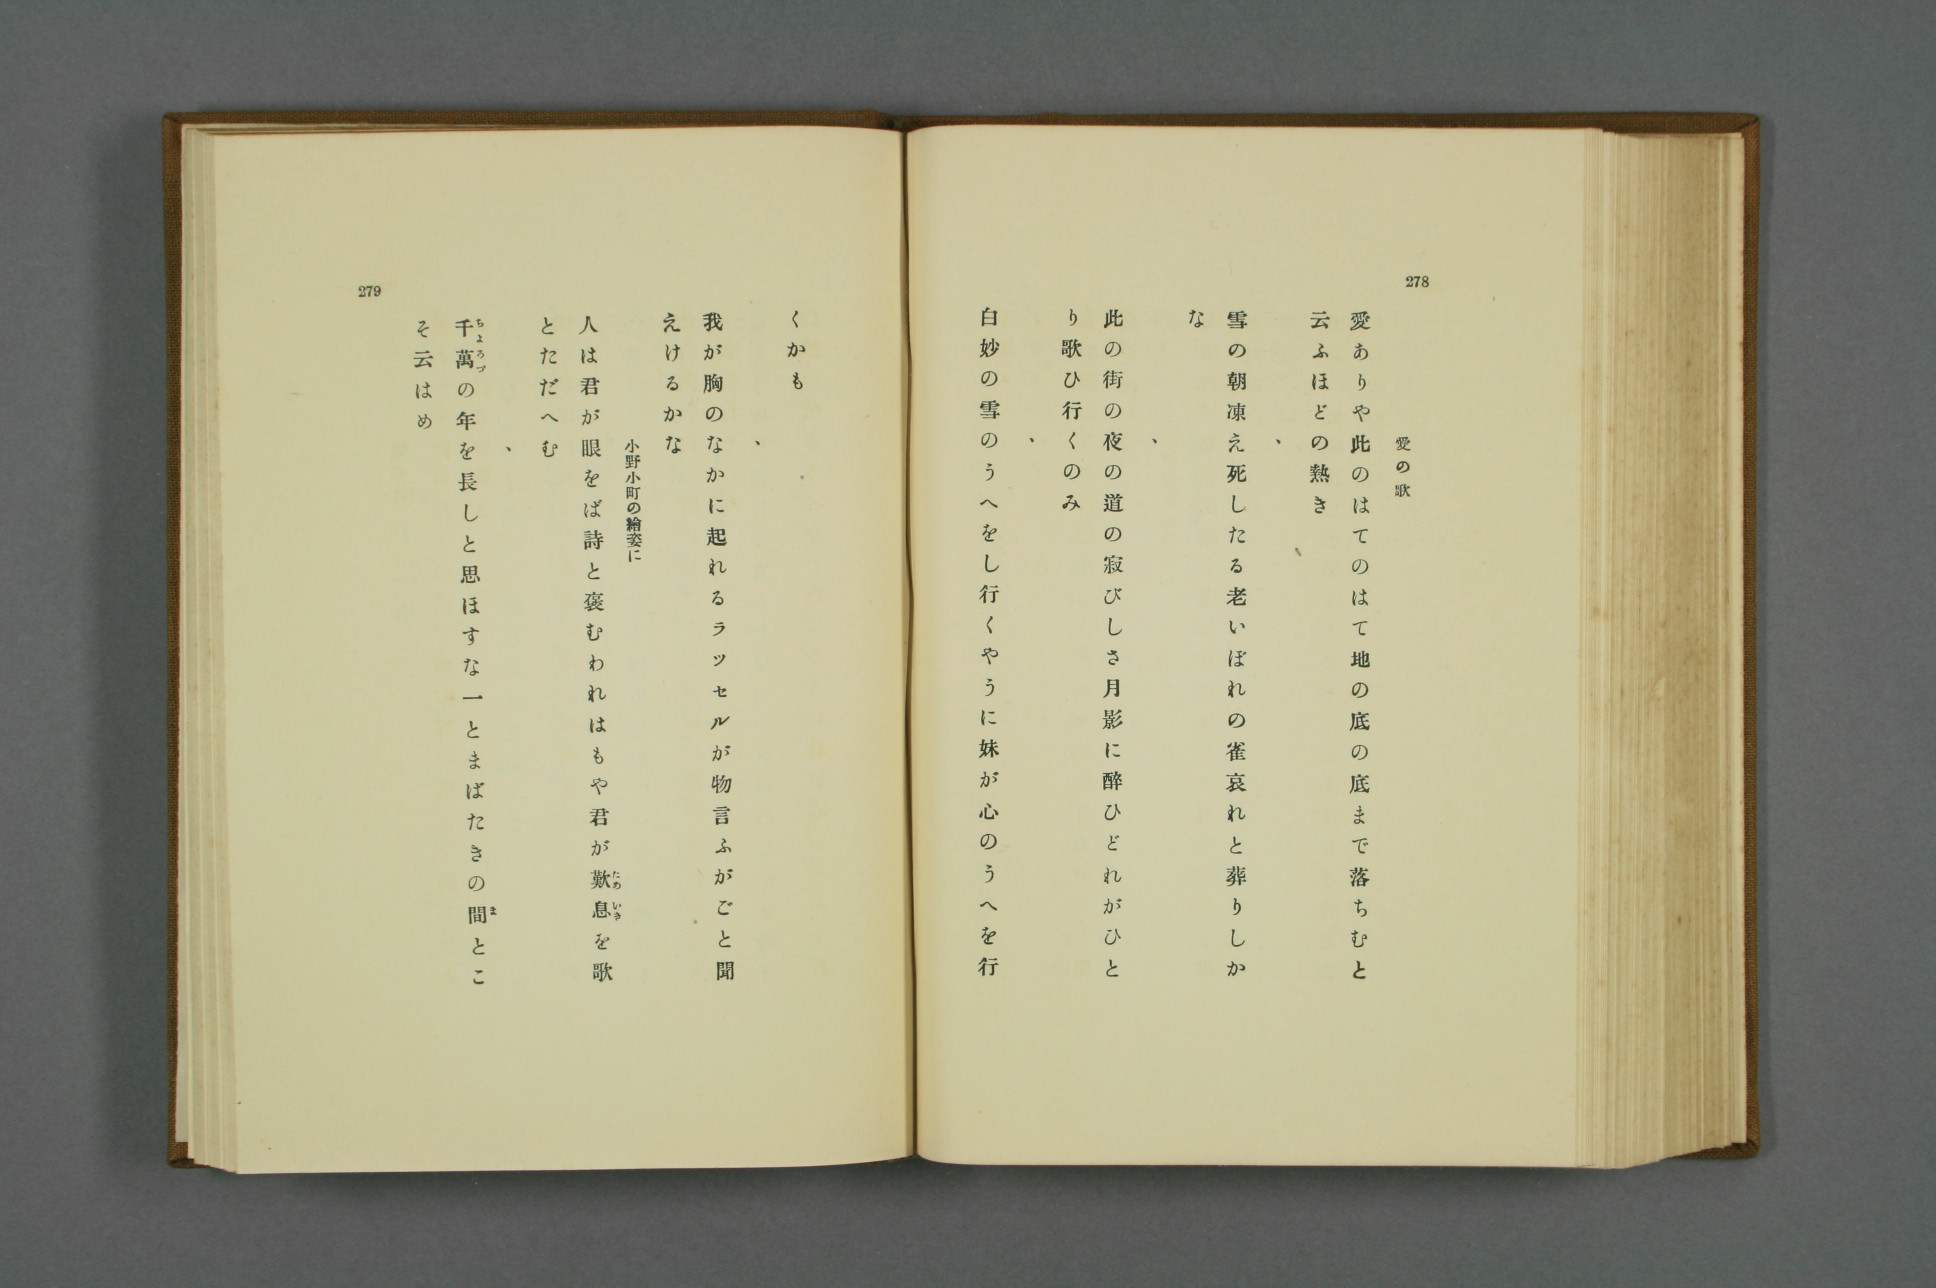 278
愛の歌
愛ありや此のはてのはて地の底の底まで落ちむと
云ふほどの熱き
、
雪の朝凍え死したる老いぼれの雀哀れと葬りしか
な
、
此の街の夜の道の寂びしさ月影に醉ひどれがひと
り歌ひ行くのみ
、
白妙の雪のうへをし行くやうに妹が心のうへを行
279
くかも
、
我が胸のなかに起れるラツセルが物言ふがごと聞
えけるかな
小野小町の繪姿に
人は君が眼をば詩と褒むわれはもや君が歎息を歌
ためいき
とただへむ
、
千萬の年を長しと思ほすな一とまばたきの間とこ
ちよろづ
ま
そ云はめ